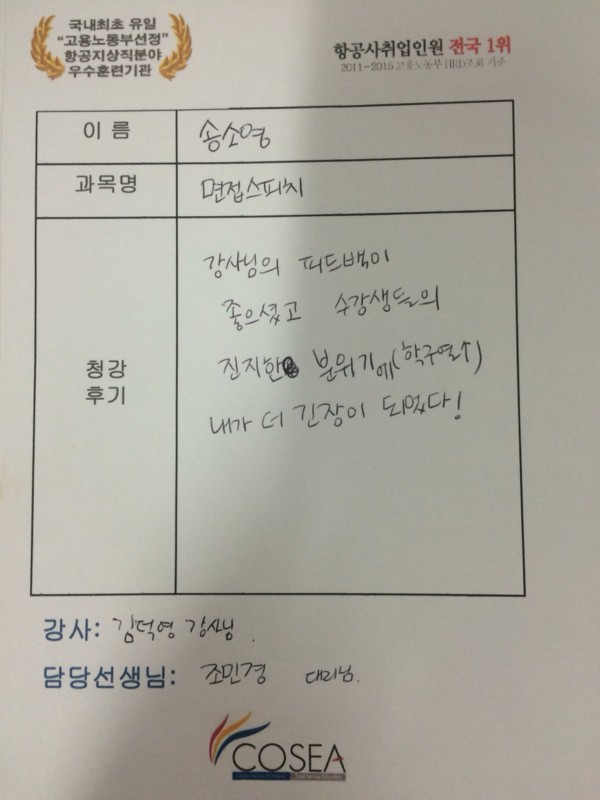 국내최초 유일
"고용노동부선정"
항공지상직분야
우수훈련기관
항공사취업인원 전국 1위
2011-2015 고용노동부 HRD조회 기준
이 름
송소영
과목명
면접스피치
청강
후기
강사님의 피드백이
좋으셨고 수강생들의
진지한 분위기에(학구열↑)
내가 더 긴장이 되었다!
강사: 김덕영 강사님.
담당선생님: 조민경 대리님.
COSEA